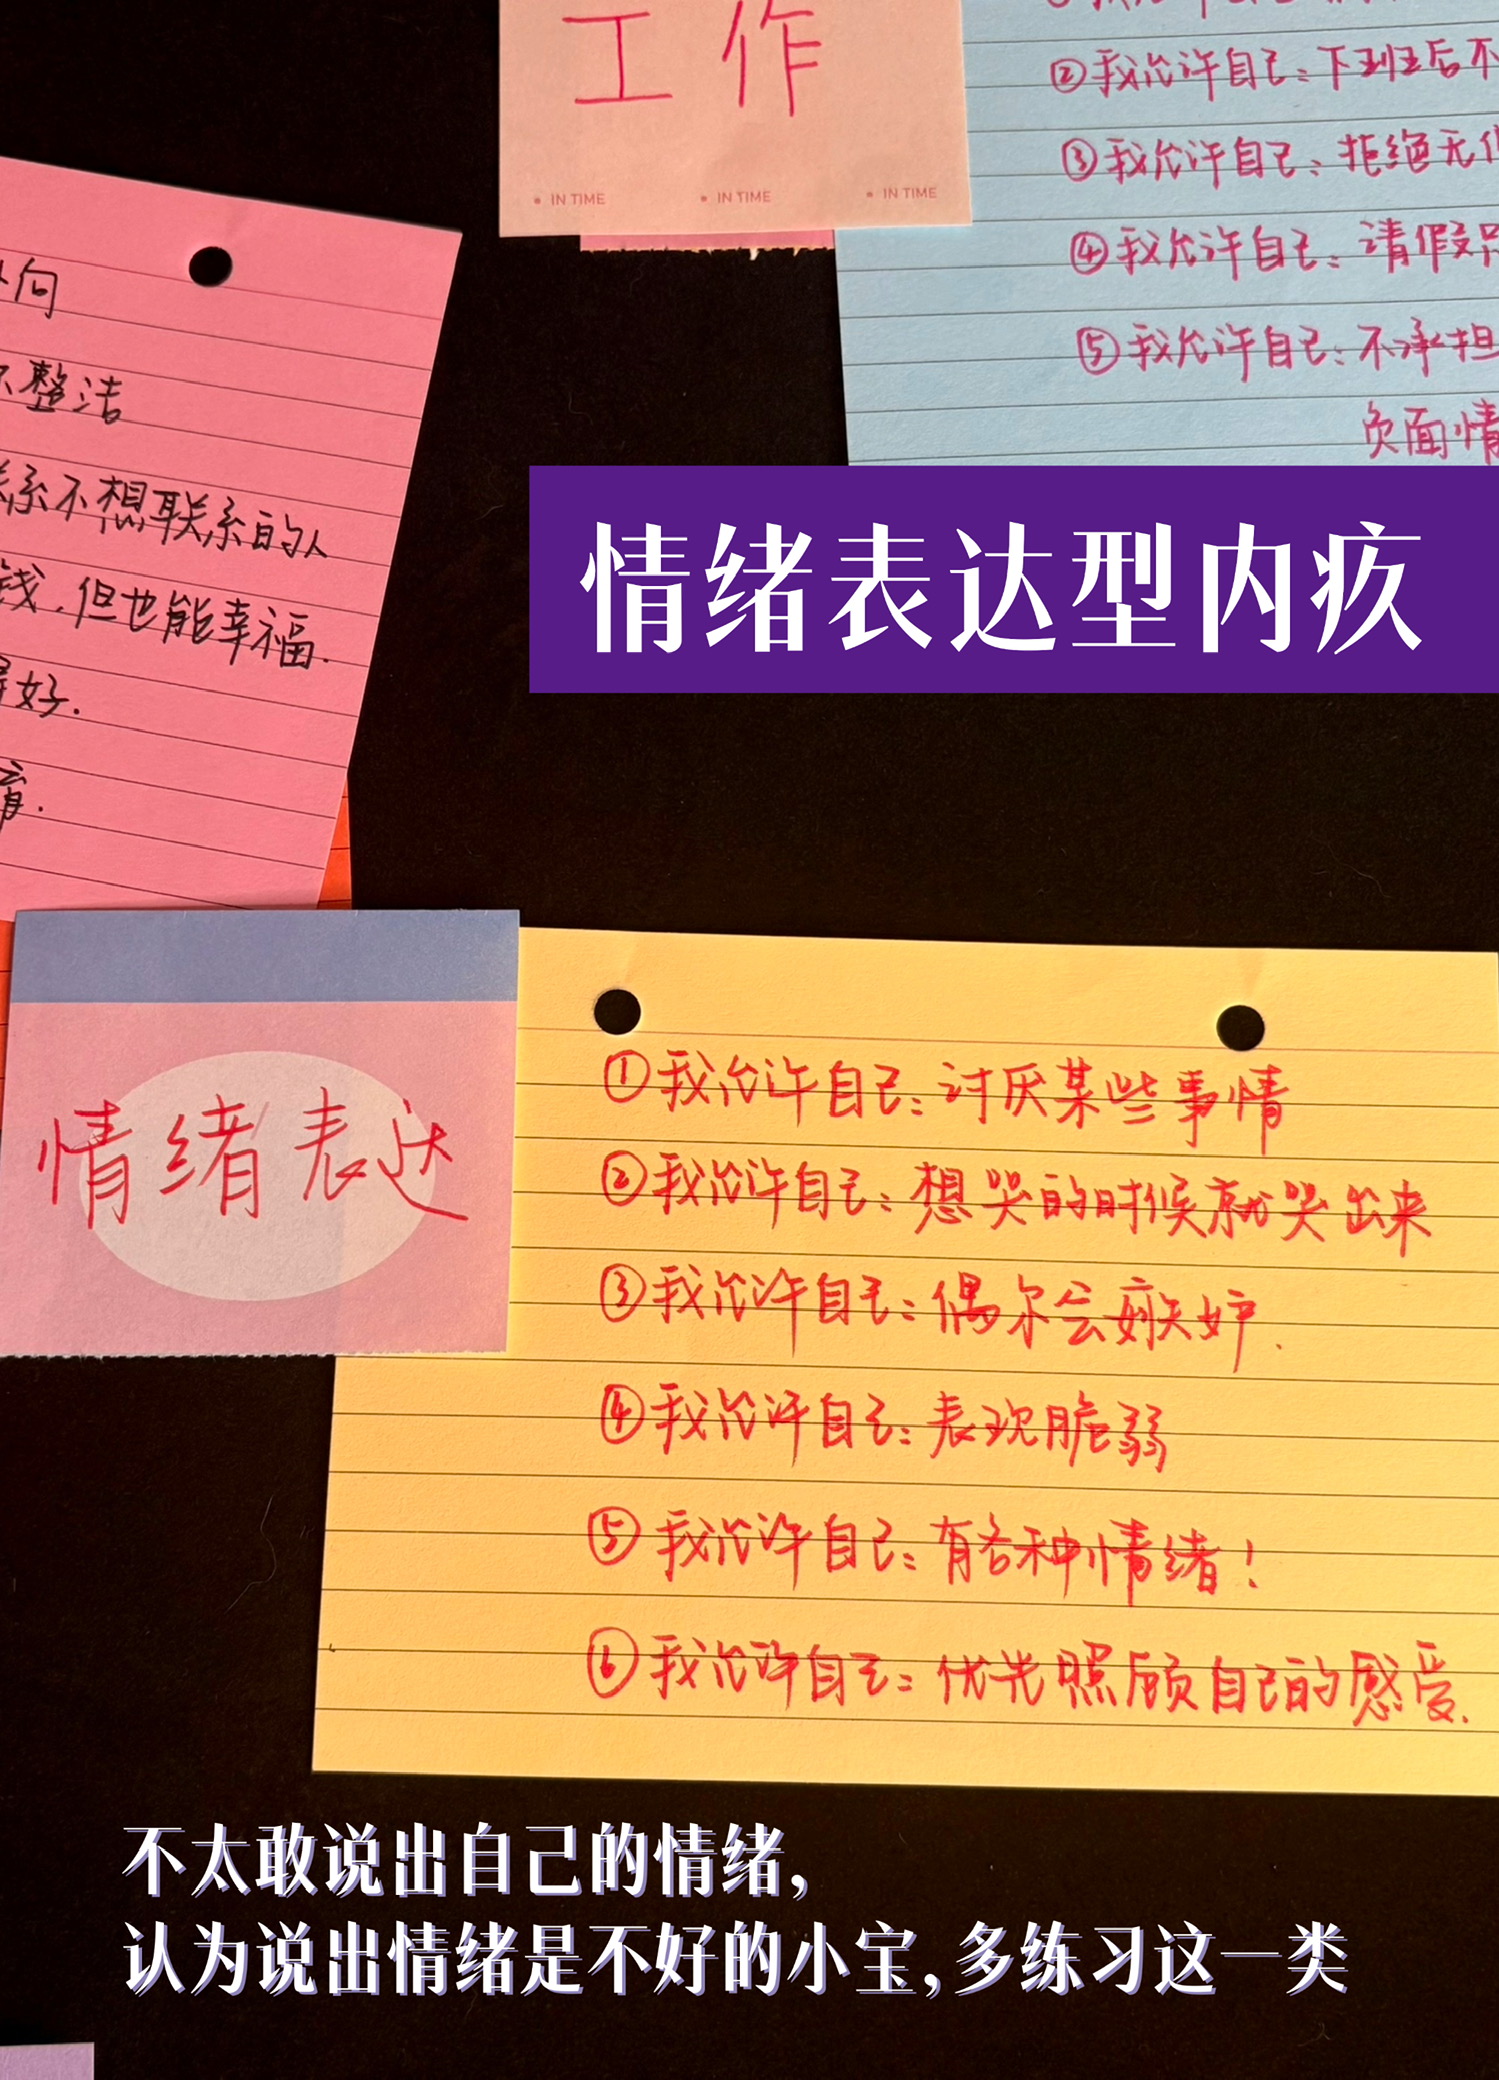 工作
② 我允许自己：下班后不
③ 我允许自己：拒绝无
④ 我允许自己：请假
⑤ 我允许自己：不承担
负面情
向
整洁
系不想联系的人
钱，但也能幸福.
好.
情绪表达型内疚
情绪表达
① 我允许自己：讨厌某些事情
② 我允许自己：想哭的时候就哭出来
③ 我允许自己：偶尔会嫉妒.
④ 我允许自己：表现脆弱
⑤ 我允许自己：有各种情绪！
⑥ 我允许自己：优先照顾自己的感受.
• IN TIME • IN TIME • IN TIME
不太敢说出自己的情绪，
认为说出情绪是不好的小宝，多练习这一类